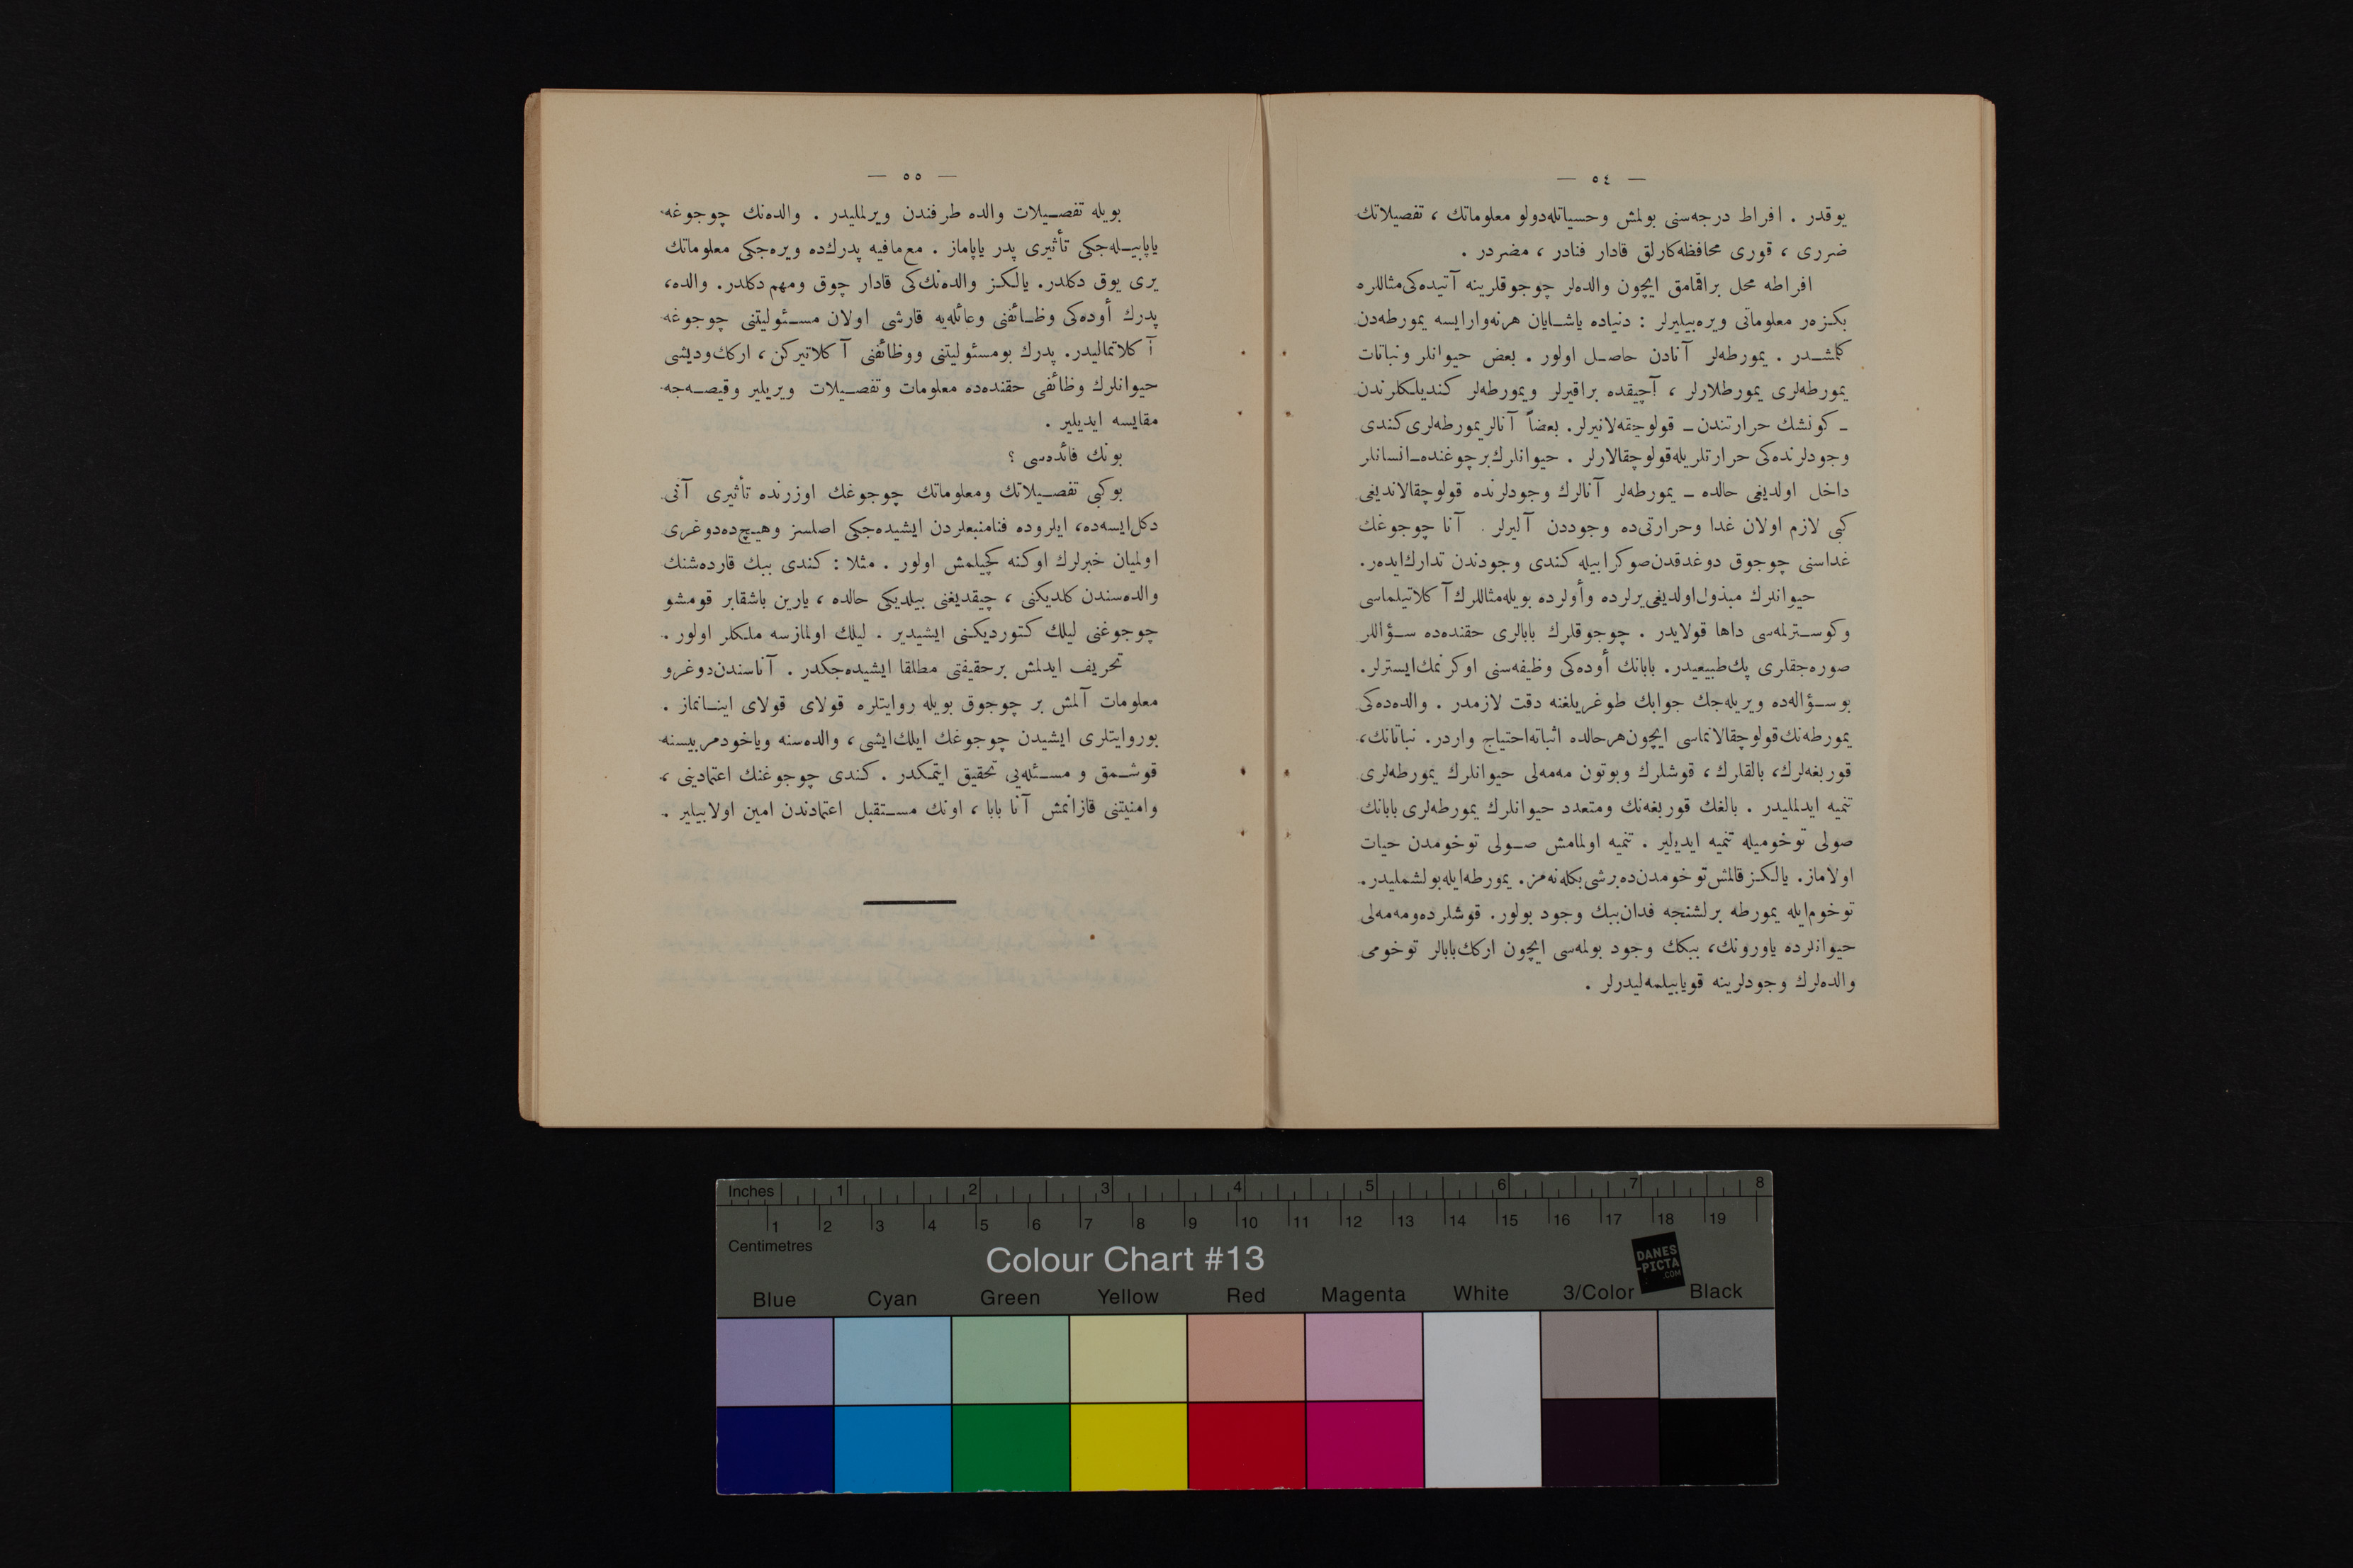 — ٥٤ —
يوقدر . افراط درجه‌سنی بولمش وحسیاتله‌دولو معلوماتك ، تفصیلاتك
ضرری ، قوری محافظه‌كارلق قادار فنادر ، مضردر .
افراطه محل براقمامق ایچون والده‌لر چوجوقلرینه آتیده‌كی‌مثاللره
بكـزه‌ر معلوماتی ویره‌بیلیرلر : دنیاده یاشــایان هرنه‌وارایسه یمورطه‌دن
كلمشــدر . یمورطه‌لر آنادن حاصــل اولور . بعض حیوانلر ونباتات
یمورطه‌لری یمورطلارلر ، آچیقده براقیرلر ویمورطه‌لر كندیلكلرندن
ـ كونشك حرارتندن ـ قولوچقه‌لانیرلر. بعضاً آنالریمورطه‌لری‌كندی
وجودلرنده‌كی حرارتلریله‌قولوچقالارلر . حیوانلرك‌برچوغنده‌ـ‌انسانلر
داخل اولدیغی حالده ـ یمورطه‌لر آنالرك وجودلرنده قولوچقالاندیغی
كبی لازم اولان غدا وحرارتی‌ده وجوددن آلیرلر . آنا چوجوغك
غداسنی چوجوق دوغدقدن‌صوكرابیله كندی وجودندن تدارك‌ایده‌ر.
حیوانلرك مبذول‌اولدیغی‌یرلرده وأولرده بویله‌مثاللرك‌آكلاتیلماسی
وكوســترلمه‌سی داها قولایدر . چوجوقلرك بابالری حقنده‌ده ســؤاللر
صوره‌جقلری پك‌طبیعیدر. بابانك أوده‌كی وظیفه‌سنی اوكرنمك‌ایسترلر.
بوســؤاله‌ده ویریله‌جك جوابك طوغریلغنه دقت لازمدر . والده‌ده‌كی
یمورطه‌نك‌قولوچقالانماسی ایچون‌هرحالده اثباته‌احتیاج واردر. نباتاتك،
قوربغه‌لرك، بالقلرك، قوشلرك وبوتون مه‌مه‌لی حیوانلرك یمورطه‌لری
تنمیه ایدلملیدر . بالغك قوربغه‌نك ومتعدد حیوانلرك یمورطه‌لری بابانك
صولی توخومیله تنمیه ایدیلیر . تنمیه اولمامش صــولی توخومدن حیات
اولاماز. یالكـز قالمش‌توخومدن‌ده‌برشی‌بكله‌نه‌مز. یمورطه‌ایله‌بولشملیدر.
توخوم‌ایله یمورطه برلشنجه فدان‌ببك وجود بولور. قوشلرده‌ومه‌مه‌لی
حیوانلرده یاورونك، ببكك وجود بولمه‌سی ایچون اركك‌بابالر توخومی
والده‌لرك وجودلرینه قویابیلمه‌لیدرلر .
— ٥٥ —
بویله تفصــیلات والده طرفندن ویرلملیدر . والده‌نك چوجوغه
یاپابیــله‌جكی تأثیری پدر یاپاماز . مع‌مافیه پدرك‌ده ویره‌جكی معلوماتك
یری یوق دكلدر. یالكـز والده‌نك‌كی قادار چوق ومهم دكلدر. والده،
پدرك أوده‌كی وظــائفنی وعائله‌یه قارشی اولان مســئولیتنی چوجوغه
آكلاتمالیدر. پدرك بومسئولیتنی ووظائفنی آكلاتیركن، اركك‌ودیشی
حیوانلرك وظائفی حقنده‌ده معلومات وتفصــیلات ویریلیر وقیصــه‌جه
مقایسه ایدیلیر .
بونك فائده‌سی ؟
بوكبی تفصــیلاتك ومعلوماتك چوجوغك اوزرنده تأثیری آنی
دكل‌ایسه‌ده، ایلروده فنامنبعلردن ایشیده‌جكی اصلسز وهیـچ‌ده‌دوغری
اولمیان خبرلرك اوكنه كچیلمش اولور . مثلا : كندی ببك قارده‌شنك
والده‌سندن كلدیكنی ، چیقدیغنی بیلدیكی حالده ، یارین باشقابر قومشو
چوجوغنی لیلك كتوردیكـنی ایشیدیر . لیلك اولمازسه ملكلر اولور .
تحریف ایدلمش برحقیقتی مطلقا ایشیده‌جكدر . آناسندن‌دوغرو
معلومات آلمش بر چوجوق بویله روایتلره قولای قولای اینــانماز .
بوروایتلری ایشیدن چوجوغك ایلك‌ایشی ، والده‌سنه ویاخودمربیسنه
قوشــمق و مســئله‌یی تحقیق ایتمـكدر . كندی چوجوغنك اعتمادینی ،
وامنیتنی قازانمش آنا بابا ، اونك مســتقبل اعتمادندن امین اولابیلیر .
Inches 1 2 3 4 5 6 7 8
1 2 3 4 5 6 7 8 9 10 11 12 13 14 15 16 17 18 19
Centimetres
Colour Chart #13
DANES
-PICTA
.COM
Blue Cyan Green Yellow Red Magenta White 3/Color Black